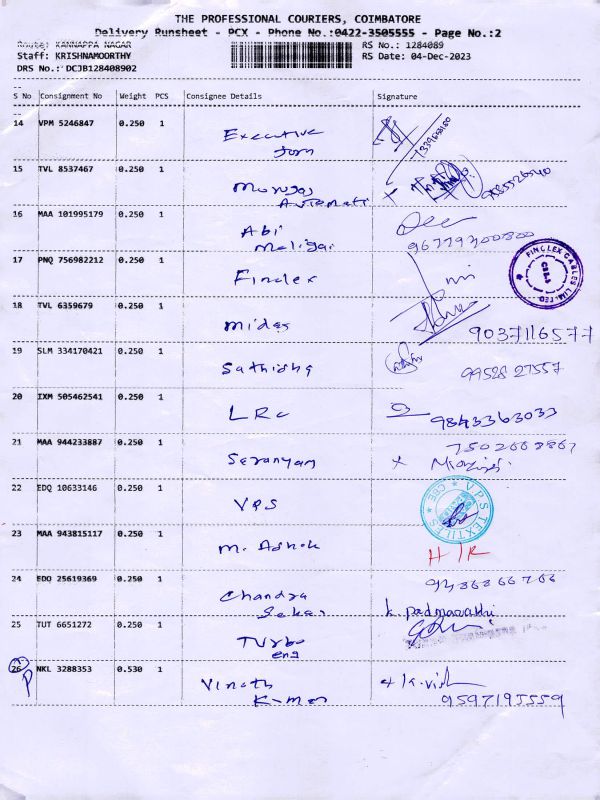 THE PROFESSIONAL COURIERS, COIMBATORE
Delivery Runsheet - PCX - Phone No.:0422-3505555 - Page No.:2
Route: KANNAPPA NAGAR
RS No.: 1284089
Staff: KRISHNAMOORTHY
RS Date: 04-Dec-2023
DRS No.: DCJB128408902
S No Consignment No Weight PCS Consignee Details Signature
14 VPM 5246847 0.250 1 Executive
15 TVL 8537467 0.250 1
16 MAA 101995179 0.250 1 Abi
17 PNQ 756982212 0.250 1 Finolex
FINOLEX CABLES LIMITED
18 TVL 6359679 0.250 1 Midas
9037116577
19 SLM 334170421 0.250 1 Sathish
99528 27557
20 IXM 505462541 0.250 1 LRC 9843363033
21 MAA 944233887 0.250 1
22 EDQ 10633146 0.250 1 VPS
V.P.S TEXTILES CBE
23 MAA 943815117 0.250 1 M. Ashok
24 EDQ 25619369 0.250 1 Chandra
Sekar
k. padmavathi
25 TUT 6651272 0.250 1 Turbo
eng
26 NKL 3288353 0.530 1 Vinoth
Kumar
9597195559